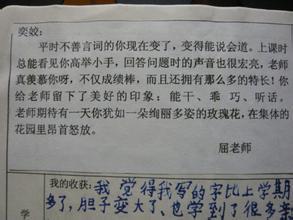 奕姣：
平时不善言词的你现在变了，变得能说会道。上课时
总能看见你高举小手，回答问题时的声音也很宏亮，老师
真羡慕你呀，不仅成绩棒，而且还拥有那么多的特长！你
给老师留下了美好的印象：能干、乖巧、听话。
老师期待有一天你犹如一朵绚丽多姿的玫瑰花，在集体的
花园里昂首怒放。
屈老师
学
我的收获：我觉得我写的字比上学期
多了，胆子变大了、也学到了很多